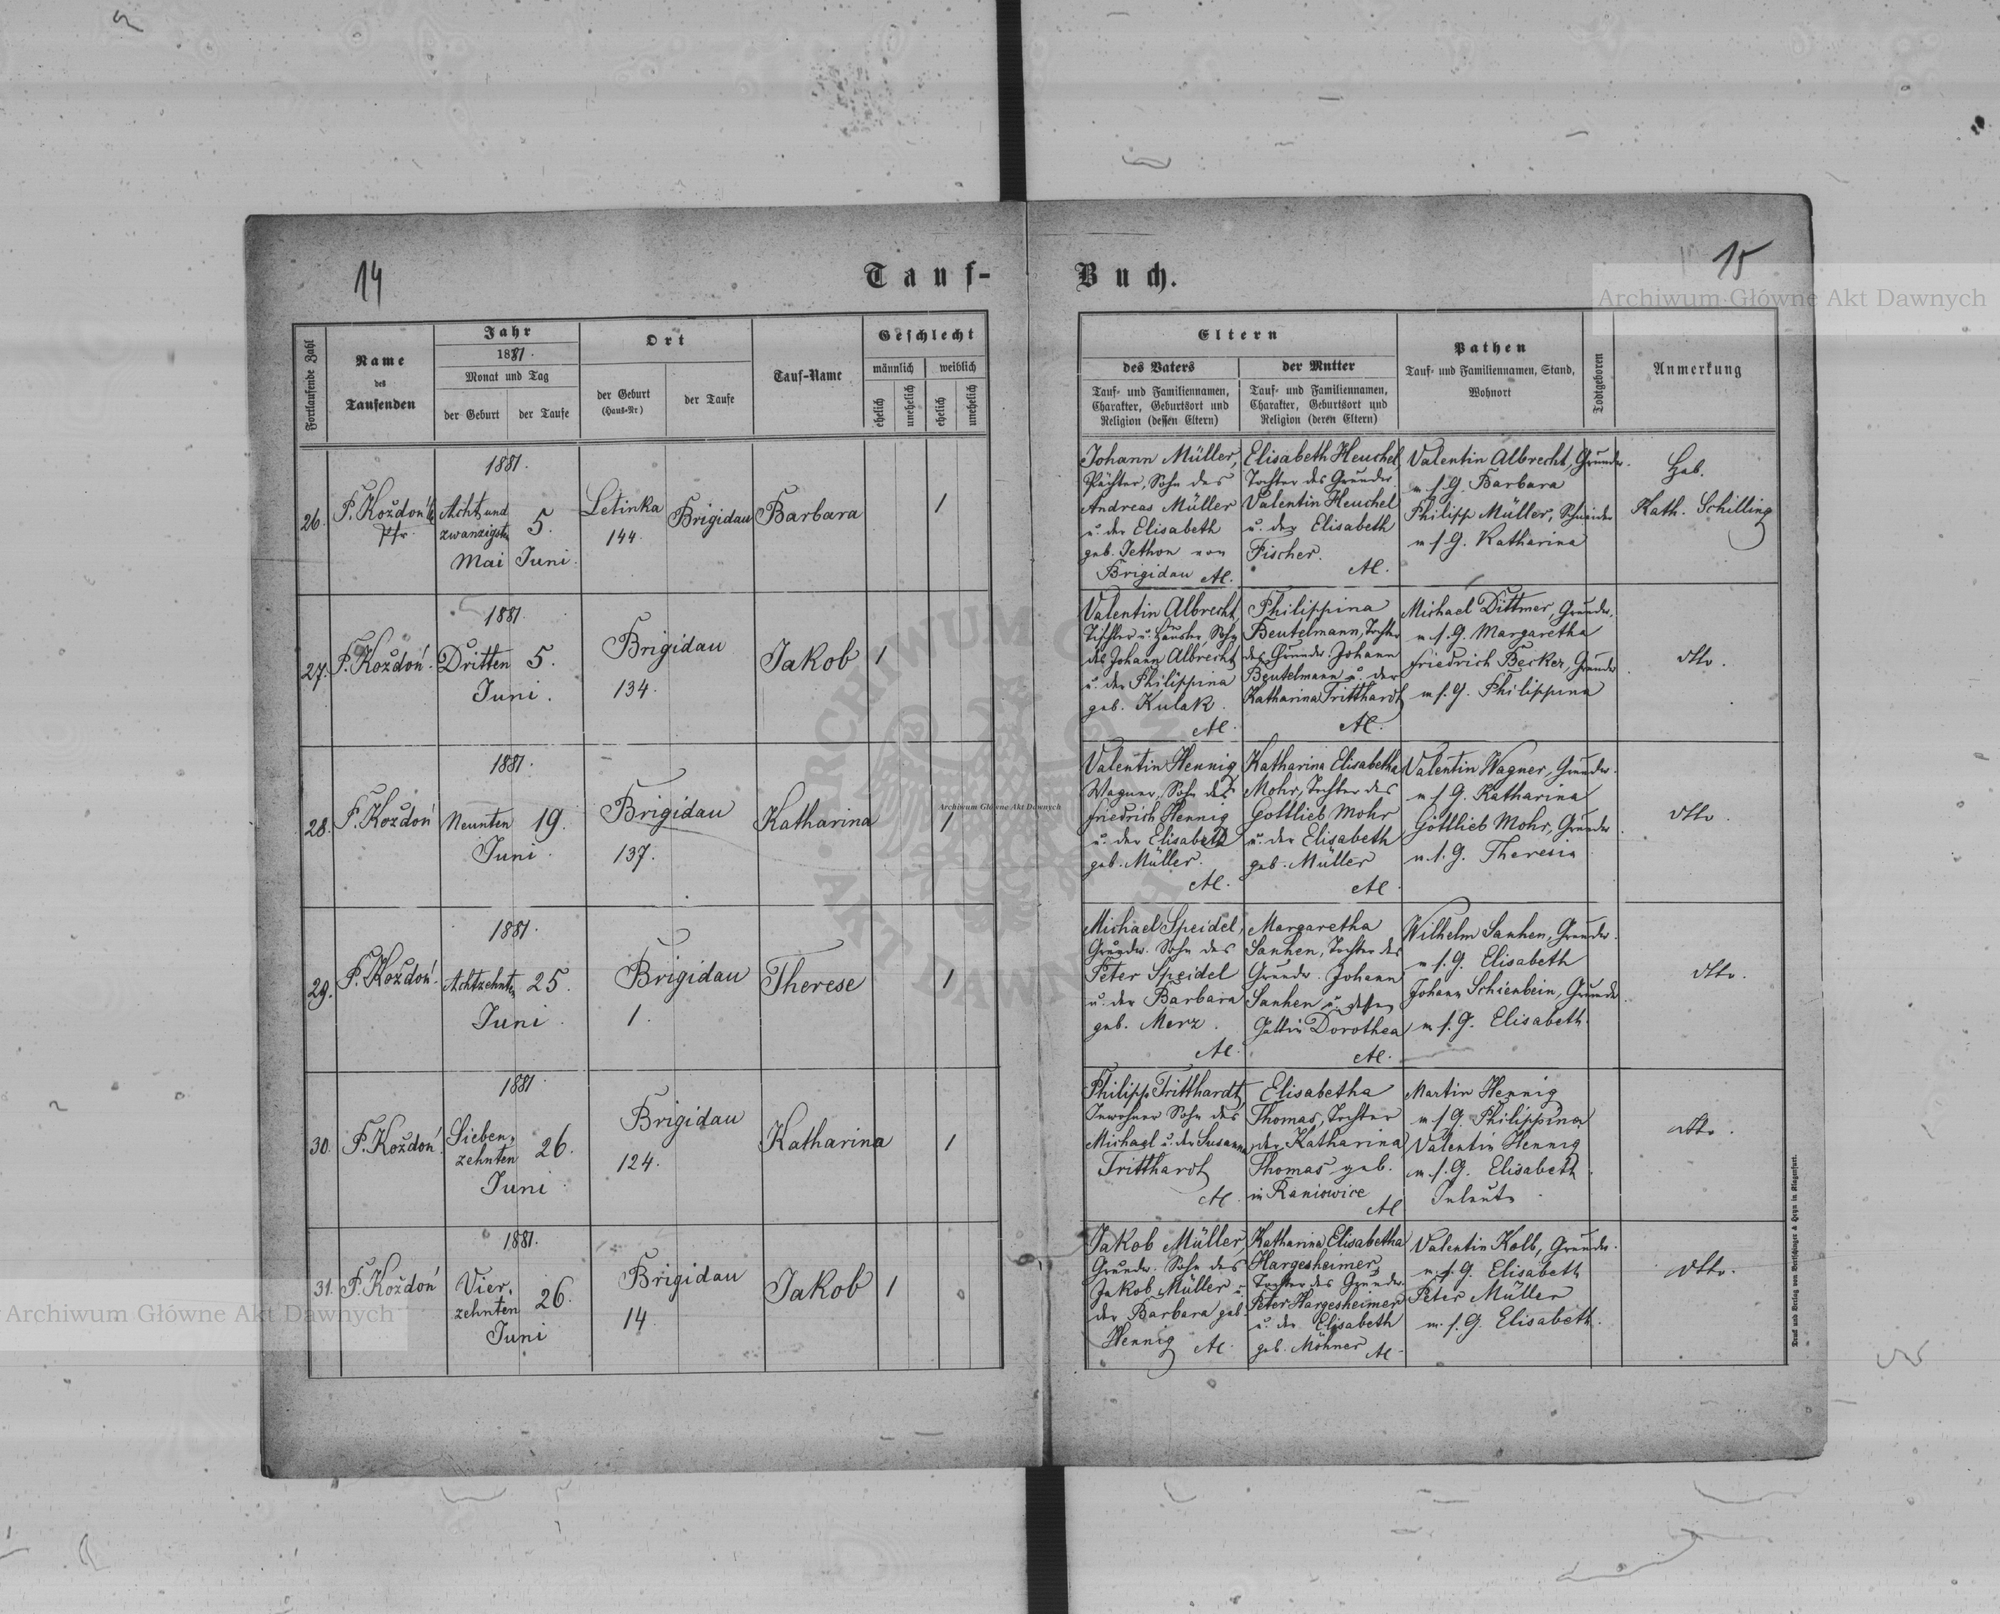 14
Tauf-
Buch.
15
Archiwum Główne Akt Dawnych
Fortlaufende Zahl
Name
des
Taufenden
Jahr
1881.
Monat und Tag
der Geburt
der Taufe
Ort
der Geburt
(Haus-Nr)
der Taufe
Tauf-Name
Geschlecht
männlich
weiblich
ehelich
unehelich
ehelich
unehelich
Eltern
des Vaters
Tauf- und Familiennamen,
Charakter, Geburtsort und
Religion (dessen Eltern)
der Mutter
Tauf- und Familiennamen,
Charakter, Geburtsort und
Religion (deren Eltern)
Pathen
Tauf- und Familiennamen, Stand,
Wohnort
Todtgeboren
Anmerkung
26.
F. Koždoń
Pfr.
1881.
Acht und
zwanzigsten
Mai
5.
Juni.
Letinka
144.
Brigidau
Barbara
1
Johann Müller,
Pächter, Sohn des
Andreas Müller
u. der Elisabeth
geb. Jethon von
Brigidau AC.
Elisabeth Heuchel,
Tochter des Grundw.
Valentin Heuchel
u. der Elisabeth
Fischer.
AC.
Valentin Albrecht, Grundw.
m. s. G. Barbara
Philipp Müller, Schneider
m. s. G. Katharina
Heb.
Kath. Schilling
27.
F. Koždoń.
1881.
Dritten
Juni.
5.
Brigidau
134.
Jakob
1
Valentin Albrecht,
Tischler u. Häusler, Sohn
des Johann Albrecht
u. der Philippina
geb. Kulak.
AC.
Philippina
Beutelmann, Tochter
des Grundw. Johann
Beutelmann u. der
Katharina Tritthardt
AC.
Michael Dittmer, Grundw.
m. s. G. Margaretha
Friedrich Becker, Grundw
m. s. G. Philippina
dtto.
28.
F. Koždoń
1881.
Neunten
Juni.
19.
Brigidau
137.
Katharina
1
Valentin Hennig
Wagner, Sohn des
Friedrich Hennig
u. der Elisabeth
geb. Müller.
AC.
Katharina Elisabetha
Mohr, Tochter des
Gottlieb Mohr
u. der Elisabeth
geb. Müller
AC.
Valentin Wagner, Grundw.
m. s. G. Katharina
Gottlieb Mohr, Grundw
m. s. G. Theresia
dtto.
Archiwum Główne Akt Dawnych
29.
F. Koždoń.
1881.
Achtzehnten
Juni.
25.
Brigidau
1.
Therese
1
Michael Speidel,
Grundw. Sohn des
Peter Speidel
u. der Barbara
geb. Merz.
AC.
Margaretha
Sanhen, Tochter des
Grundw. Johann
Sanhen u. dessen
Gattin Dorothea
AC.
Wilhelm Sanhen, Grundw.
m. s. G. Elisabeth
Johann Schienbein, Grundw
m. s. G. Elisabeth.
dtto.
30.
F. Koždoń.
1881.
Sieben-
zehnten
Juni
26.
Brigidau
124.
Katharina
1
Philipp Tritthardt,
Inwohner Sohn des
Michael u. der Susanna
Tritthardt
AC.
Elisabetha
Thomas, Tochter
der Katharina
Thomas geb.
in Raniowice
AC
Martin Hennig
m. s. G. Philippina
Valentin Hennig
m. s. G. Elisabeth
dtto.
31.
F. Koždoń
1881.
Vier-
zehnten
Juni
26.
Brigidau
14.
Jakob
1
Jakob Müller,
Grundw. Sohn des
Jakob Müller u.
der Barbara geb.
Hennig AC.
Katharina Elisabetha
Hargesheimer,
Tochter des Grundw.
Peter Hargesheimer
u. der Elisabeth
geb. Möhner AC.
Valentin Kolb, Grundw.
m. s. G. Elisabeth
Peter Müller
m. s. G. Elisabeth.
dtto.
Archiwum Główne Akt Dawnych